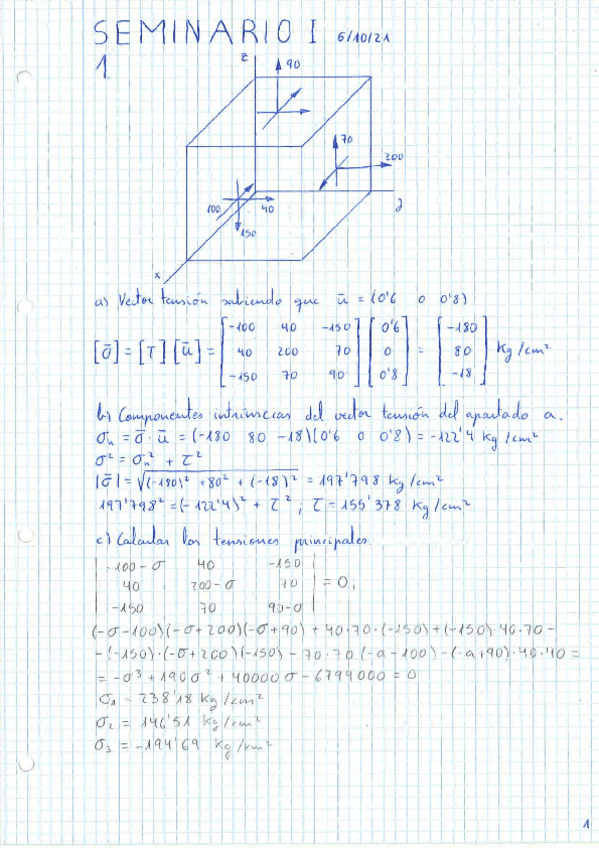 SEMINARIO I 6/10/21
1
z
90
70
200
100
40
150
y
x
a) Vector tensión sabiendo que ū = (0'6 0 0'8)
[σ̄] = [T] [ū] = [-100 40 -150; 40 200 70; -150 70 90] [0'6; 0; 0'8] = [-180; 80; -18] Kg/cm²
b) Componentes intrínsecas del vector tensión del apartado a.
σn = σ̄ · ū = (-180 80 -18)(0'6 0 0'8) = -122'4 Kg/cm²
σ² = σn² + τ²
|σ̄| = √((-180)² + 80² + (-18)²) = 197'798 Kg/cm²
197'798² = (-122'4)² + τ² ; τ = 155'378 Kg/cm²
c) Calcular las tensiones principales.
|-100-σ 40 -150|
|40 200-σ 70| = 0;
|-150 70 90-σ|
(-σ-100)(-σ+200)(-σ+90) + 40·70·(-150) + (-150)·40·70 -
-(-150)·(-σ+200)(-150) - 70·70(-σ-100) - (-σ+90)·40·40 =
= -σ³ + 190σ² + 40000σ - 6794000 = 0
σ1 = 238'18 Kg/cm²
σ2 = 146'51 Kg/cm²
σ3 = -194'69 Kg/cm²
1